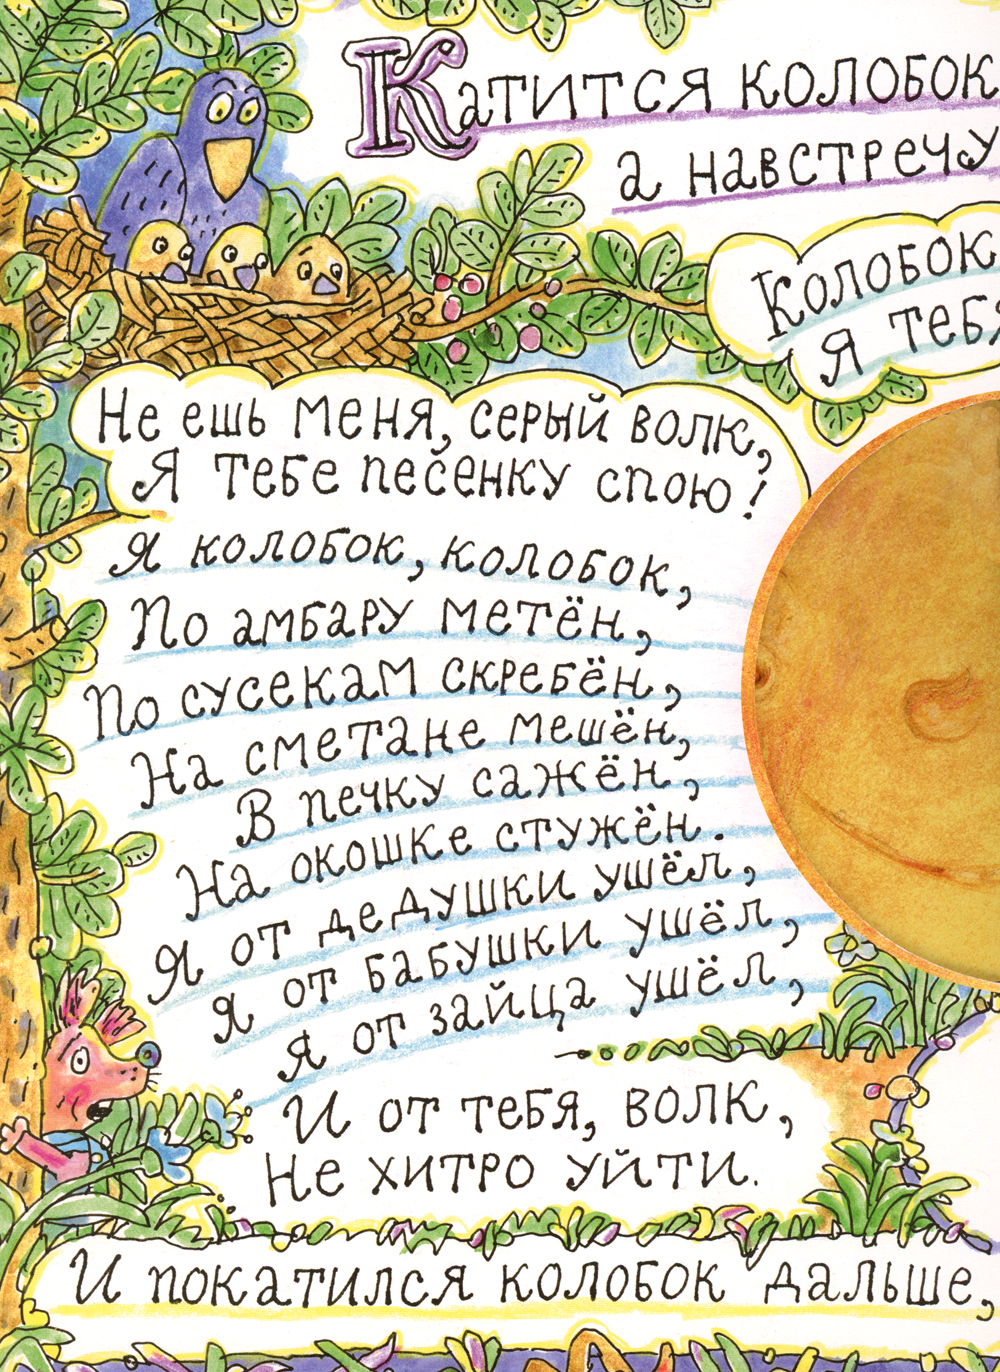 Катится колобок
а навстречу
Колобок
Я тебя
Не ешь меня, серый волк,
Я тебе песенку спою!
Я колобок, колобок,
По амбару метён,
По сусекам скребён,
На сметане мешён,
В печку сажён,
На окошке стужён.
Я от дедушки ушёл,
Я от бабушки ушёл,
Я от зайца ушёл,
И от тебя, волк,
Не хитро уйти.
И покатился колобок дальше,